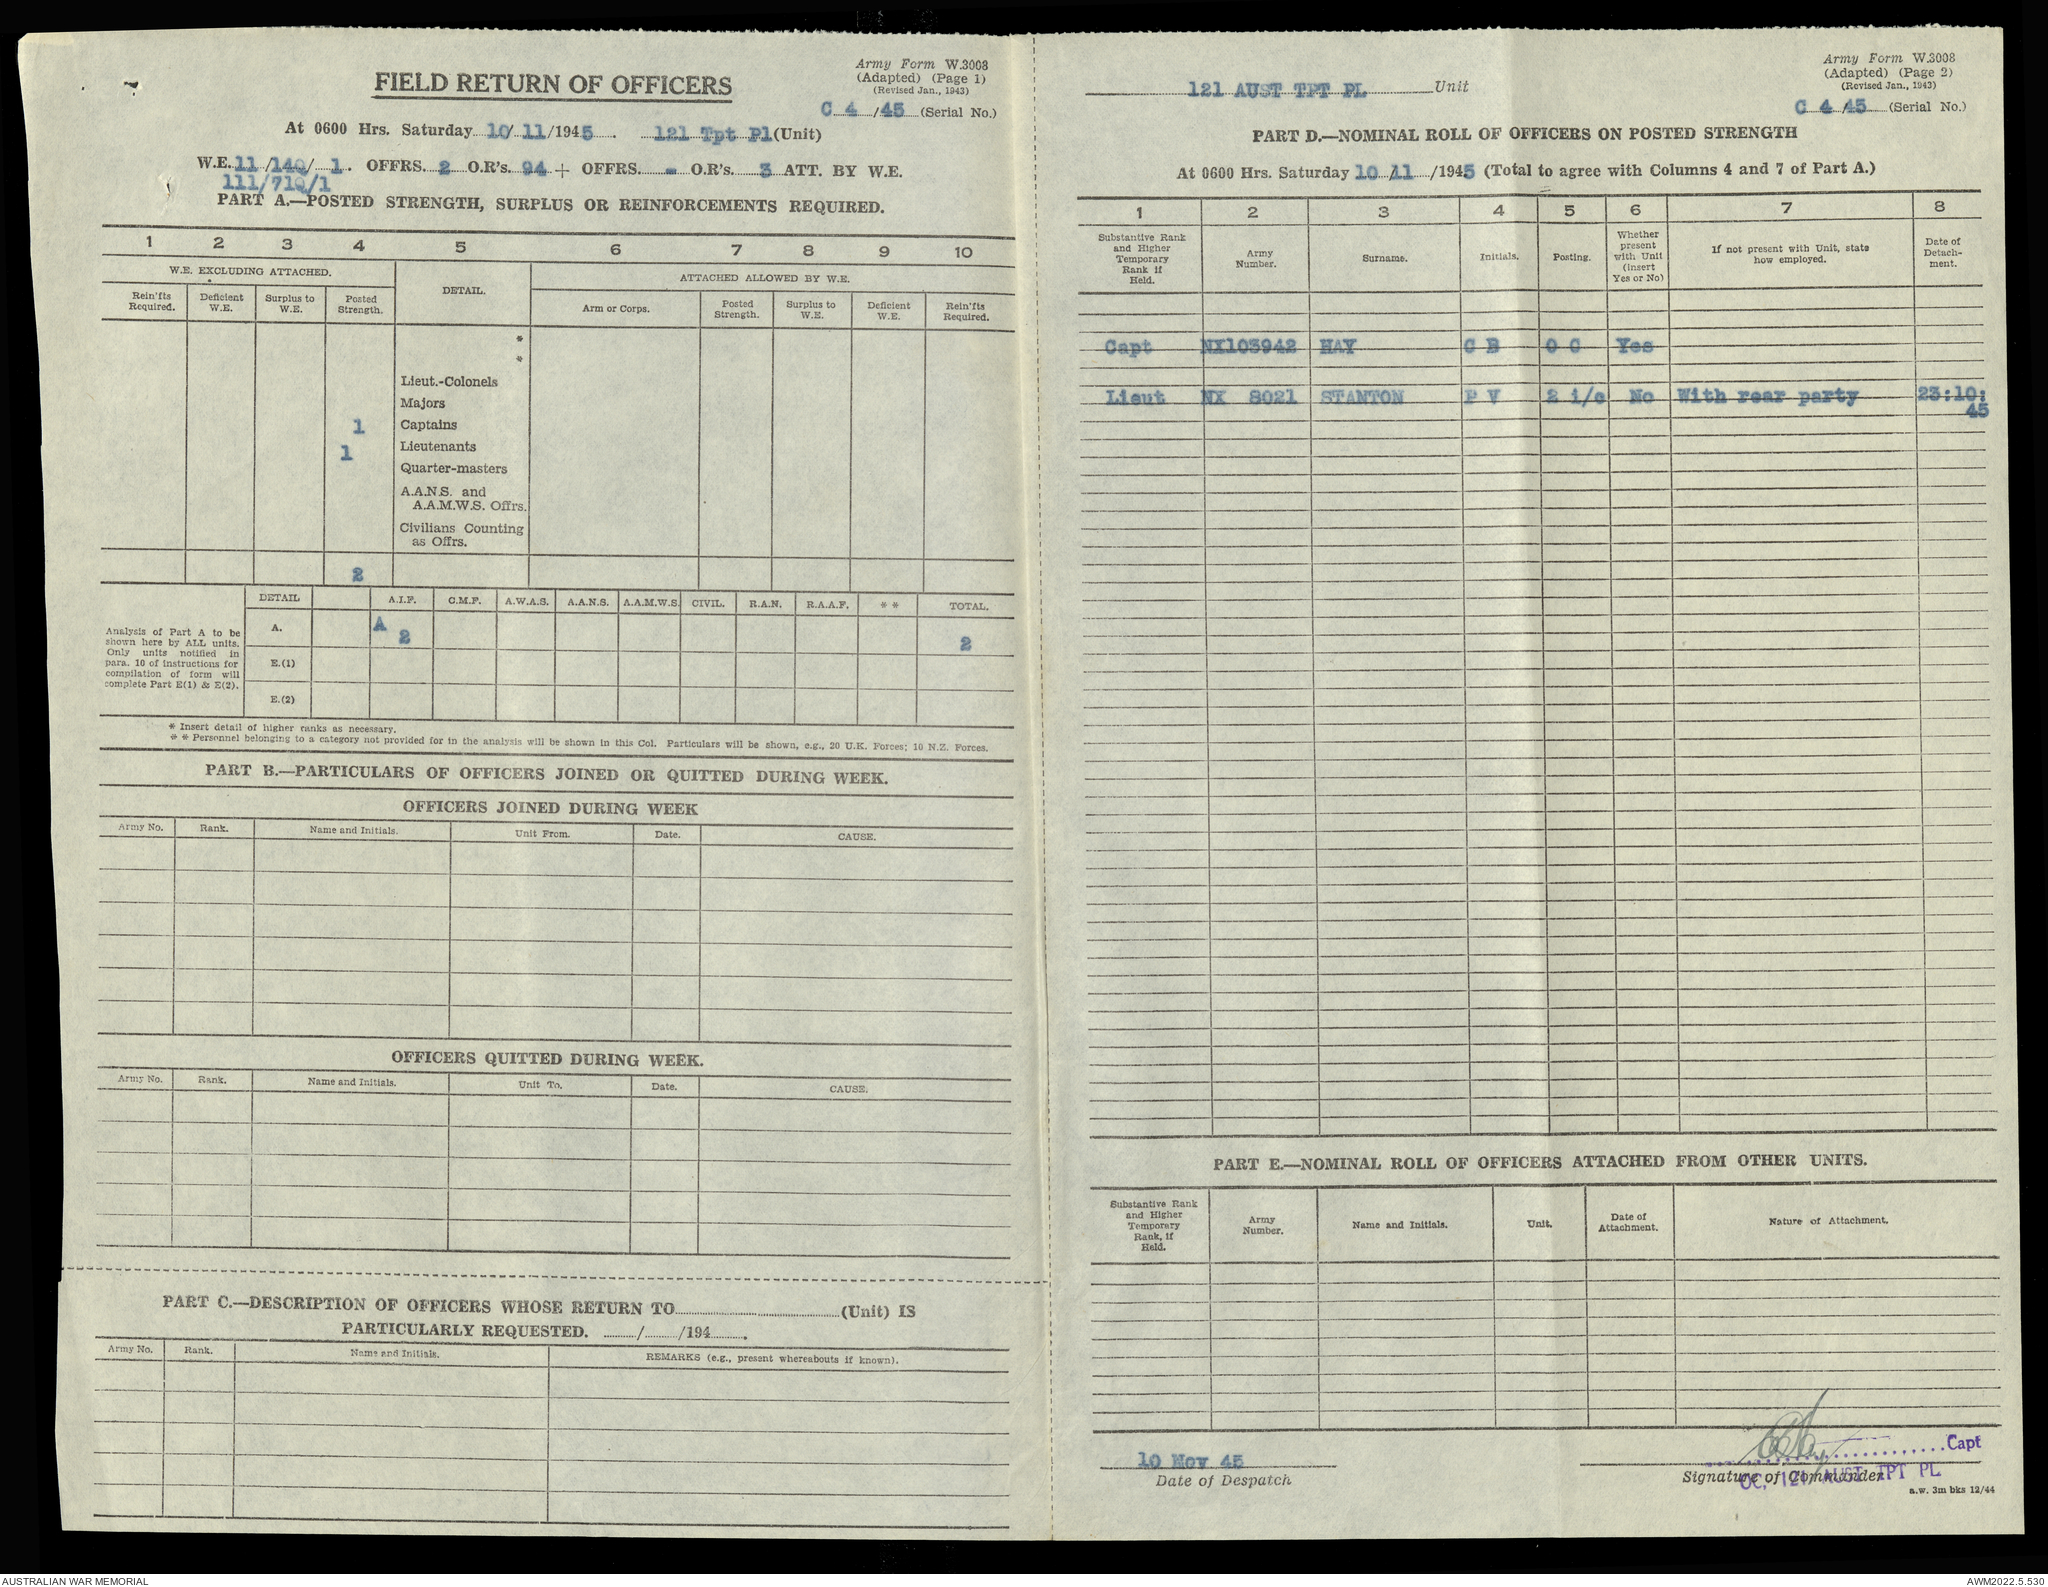 Army Form W.3008
(Adapted) (Page 1)
(Revised Jan., 1943)
FIELD RETURN OF OFFICERS
C 4 /45 (Serial No.)
At 0600 Hrs. Saturday 10/ 11 /1945 . 121 Tpt Pl (Unit)
W.E. 11 /140/ 1 . OFFRS. 2 O.R's. 94 + OFFRS. - O.R's. 3 ATT. BY W.E.
111/710/1
PART A.—POSTED STRENGTH, SURPLUS OR REINFORCEMENTS REQUIRED.
1 2 3 4 5 6 7 8 9 10
W.E. EXCLUDING ATTACHED. DETAIL. ATTACHED ALLOWED BY W.E.
Rein'fts Required. Deficient W.E. Surplus to W.E. Posted Strength. Arm or Corps. Posted Strength. Surplus to W.E. Deficient W.E. Rein'fts Required.
*
*
Lieut.-Colonels
Majors
1 Captains
1 Lieutenants
Quarter-masters
A.A.N.S. and
A.A.M.W.S. Offrs.
Civilians Counting
as Offrs.
2
DETAIL A.I.F. C.M.F. A.W.A.S. A.A.N.S. A.A.M.W.S. CIVIL. R.A.N. R.A.A.F. * * TOTAL.
Analysis of Part A to be
shown here by ALL units.
Only units notified in
para. 10 of instructions for
compilation of form will
complete Part E(1) & E(2).
A. A 2 2
E.(1)
E.(2)
* Insert detail of higher ranks as necessary.
* * Personnel belonging to a category not provided for in the analysis will be shown in this Col. Particulars will be shown, e.g., 20 U.K. Forces; 10 N.Z. Forces.
PART B.—PARTICULARS OF OFFICERS JOINED OR QUITTED DURING WEEK.
OFFICERS JOINED DURING WEEK
Army No. Rank. Name and Initials. Unit From. Date. CAUSE.
OFFICERS QUITTED DURING WEEK.
Army No. Rank. Name and Initials. Unit To. Date. CAUSE.
PART C.—DESCRIPTION OF OFFICERS WHOSE RETURN TO (Unit) IS
PARTICULARLY REQUESTED. / /194 .
Army No. Rank. Name and Initials. REMARKS (e.g., present whereabouts if known).
Army Form W.3008
(Adapted) (Page 2)
(Revised Jan., 1943)
121 AUST TPT PL Unit
C 4 /45 (Serial No.)
PART D.—NOMINAL ROLL OF OFFICERS ON POSTED STRENGTH
At 0600 Hrs. Saturday 10 /11 /1945 (Total to agree with Columns 4 and 7 of Part A.)
1 2 3 4 5 6 7 8
Substantive Rank and Higher Temporary Rank if Held. Army Number. Surname. Initials. Posting. Whether present with Unit (insert Yes or No) If not present with Unit, state how employed. Date of Detachment.
Capt NX103942 HAY C B O C Yes
Lieut NX 8021 STANTON P V 2 i/c No With rear party 23:10:
45
PART E.—NOMINAL ROLL OF OFFICERS ATTACHED FROM OTHER UNITS.
Substantive Rank and Higher Temporary Rank, if Held. Army Number. Name and Initials. Unit. Date of Attachment. Nature of Attachment.
10 Nov 45
Date of Despatch
Capt
Signature of Commander
OC, 121 AUST TPT PL
a.w. 3m bks 12/44
AUSTRALIAN WAR MEMORIAL
AWM2022.5.530